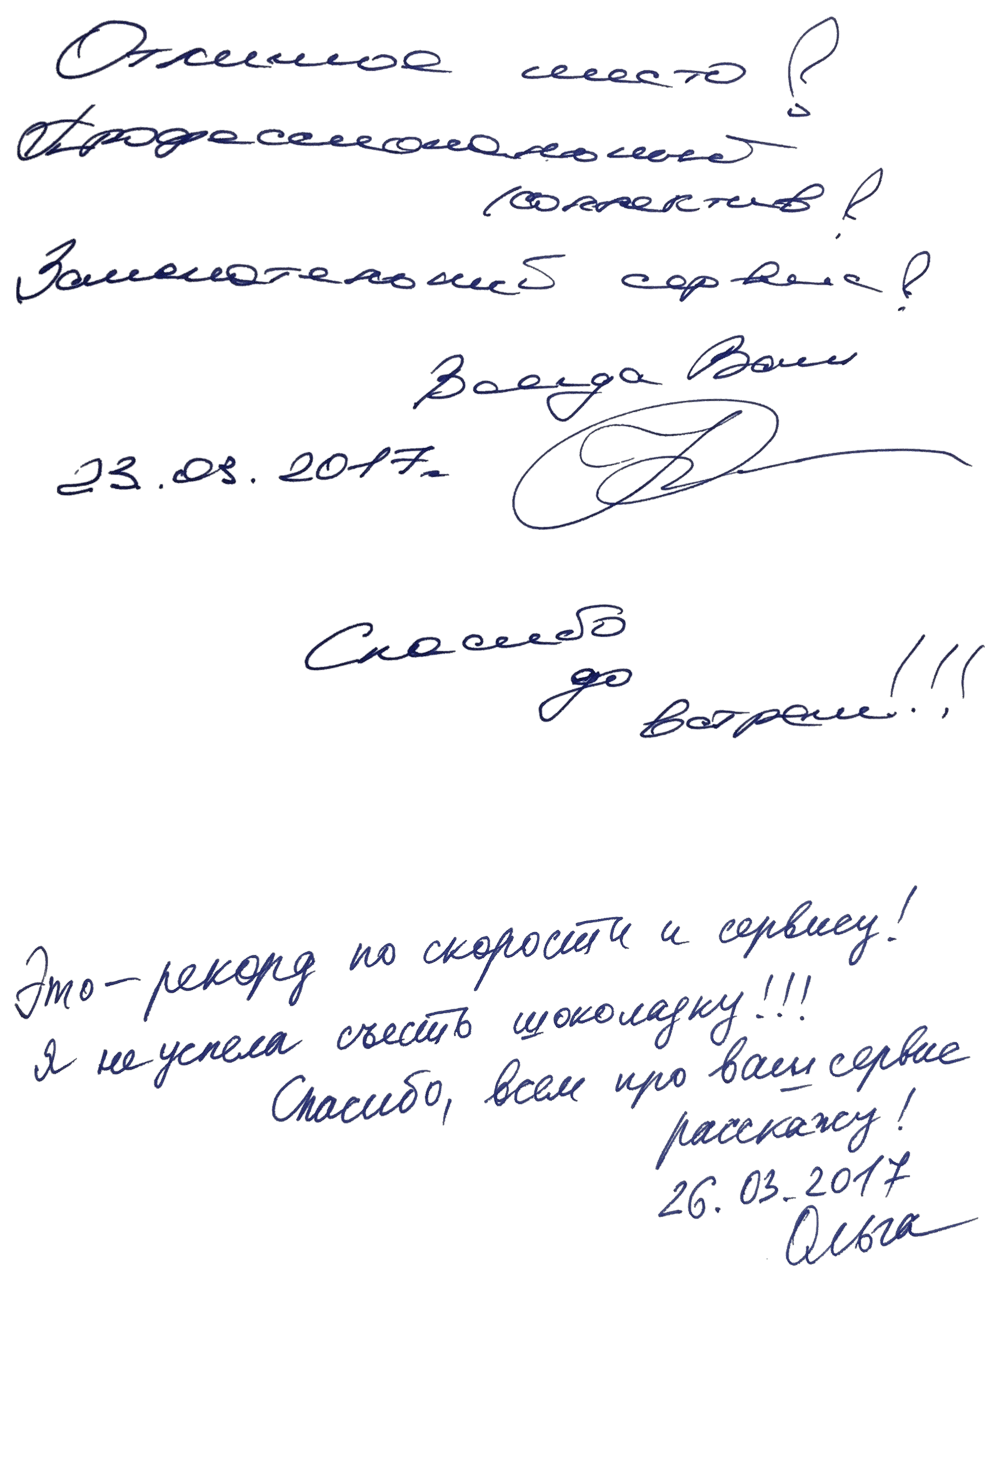 Отличное место!
Профессиональный
коллектив!
Замечательный сервис!
Всегда Ваш
23.03.2017г.
Спасибо
до
встречи!!!
Это – рекорд по скорости и сервису!
Я не успела съесть шоколадку!!!
Спасибо, всем про ваш сервис
расскажу!
26.03.2017
Ольга